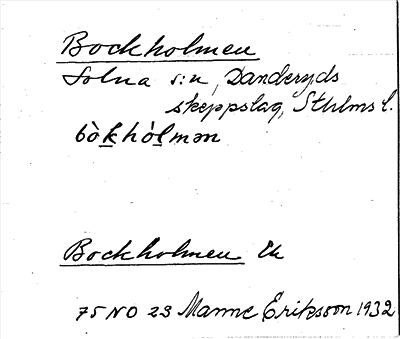 Bockholmen
Solna s:n, Danderyds
skeppslag, Sthlms l.
bòk̲hòl̲mən
Bockholmen Ek
75 NO 23 Manne Eriksson 1932